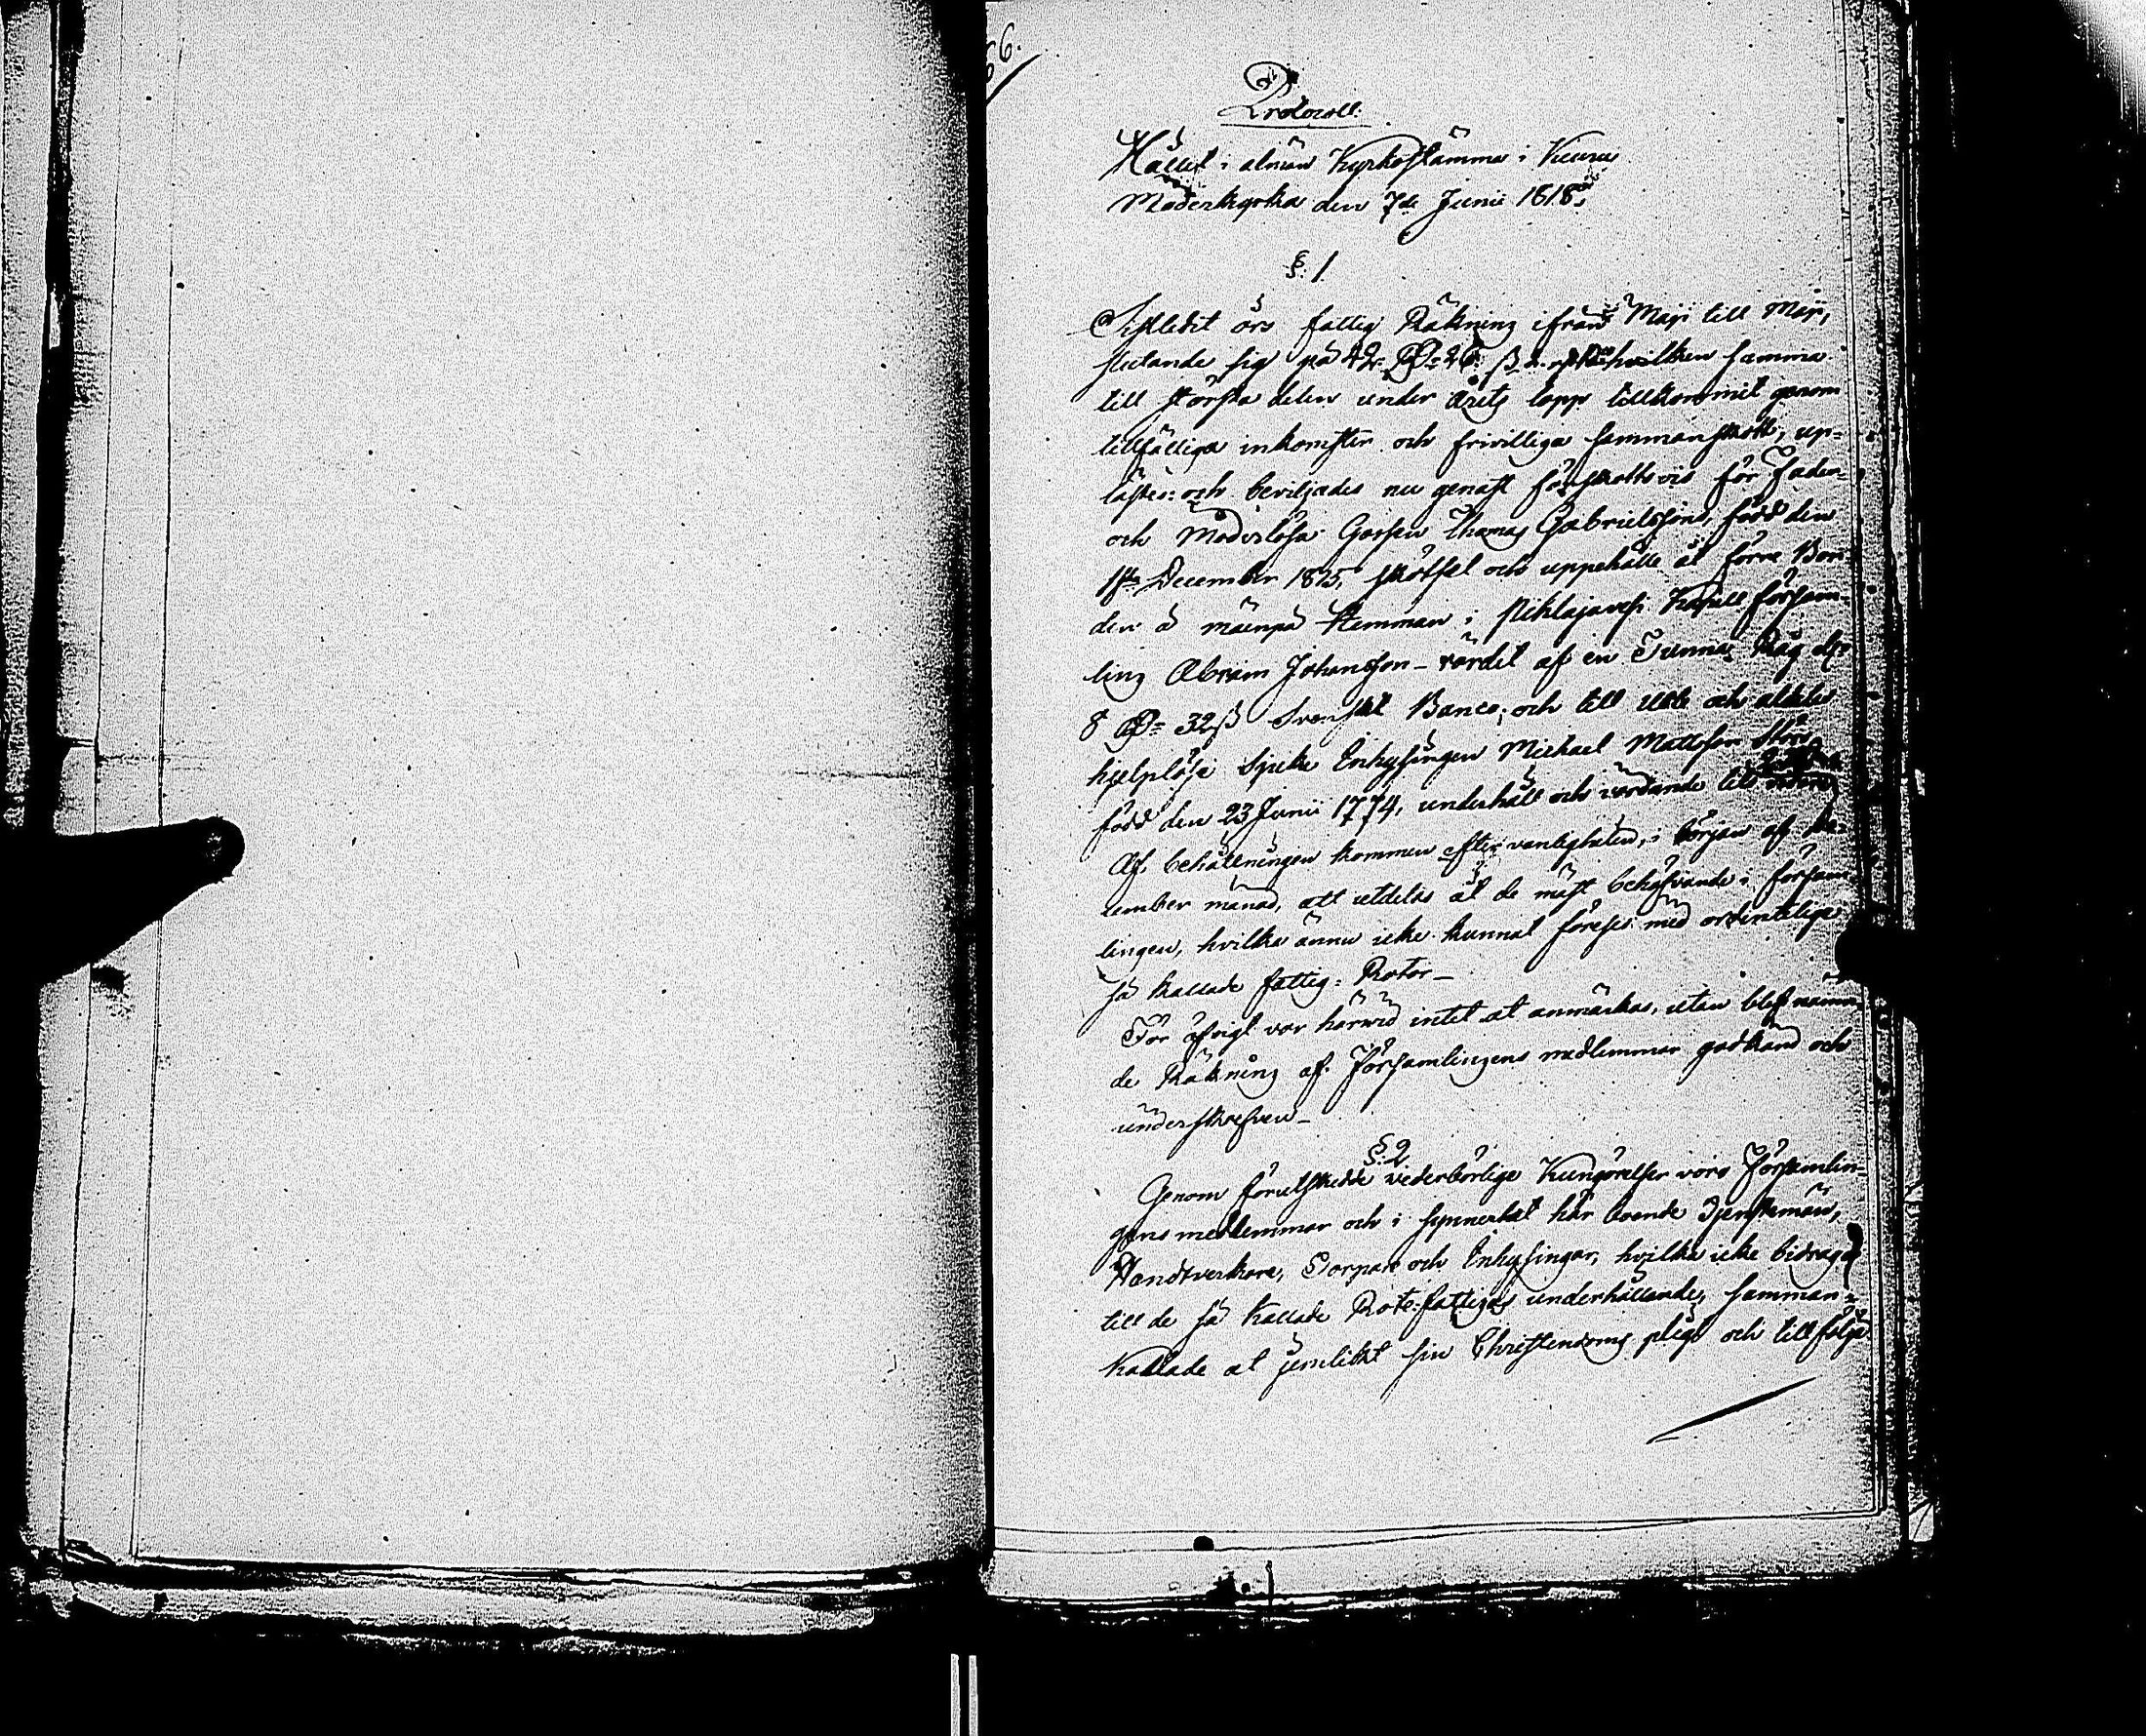 66.
Protocoll
Hållit i almän Kyrkostämma i Keuru
Moderkyrka den 7de Junii 1818.
§. 1.
Sistledit års fattig Räkning ifrån Maji till Maji,
slutande sig på 42 RD 26 ß hvilken summa
till största delen under Årets lopp tillkommit genom
tillfälliga inkomster och frivilliga sammanskott, up-
lästes: och beviljades nu genast förskottsvis för Fader
och Moderlösa Gossen Thomas Gabrielssons, född den
December 1815, skötsel och uppehälle åt förre Bon-
den å Mäenpä Hemman i Pihlajavesi Kapell försam-
ling Abram Johansson - värdet af en Tunna Råg eller
8 RD 32 ß Svenskt Banco; och till usle och aldeles
hjelplöse Sjuke Enhysingen Michael Mattsson
född den 23 Junii 1774, underhåll och vårdande till
Af behållningen kommer efter vanligheten, i början af De-
cember månad, att utdelas åt de mäst behöfvande i försam-
lingen, hvilka ännu icke kunnat föreses med ordentelige
så kallade fattig: Rotor -
För öfrigt var härwid intet at anmärkas, utan blef nämn-
de Räkning af Församlingens medlemmar godkänd och
underskrefven -
§. 2
Genom förutskedde vederbörlige Kungörelser voro Församlin-
gens medlemmar och i synnerhet här boende Tjenstemän,
Handtverkare, Torpare och Enhysingar, hvilka icke bidraga
till de så kallade Rote-fattigas underhållande, samman-
kallade at jemlikt sin Christendoms pligt och till följe